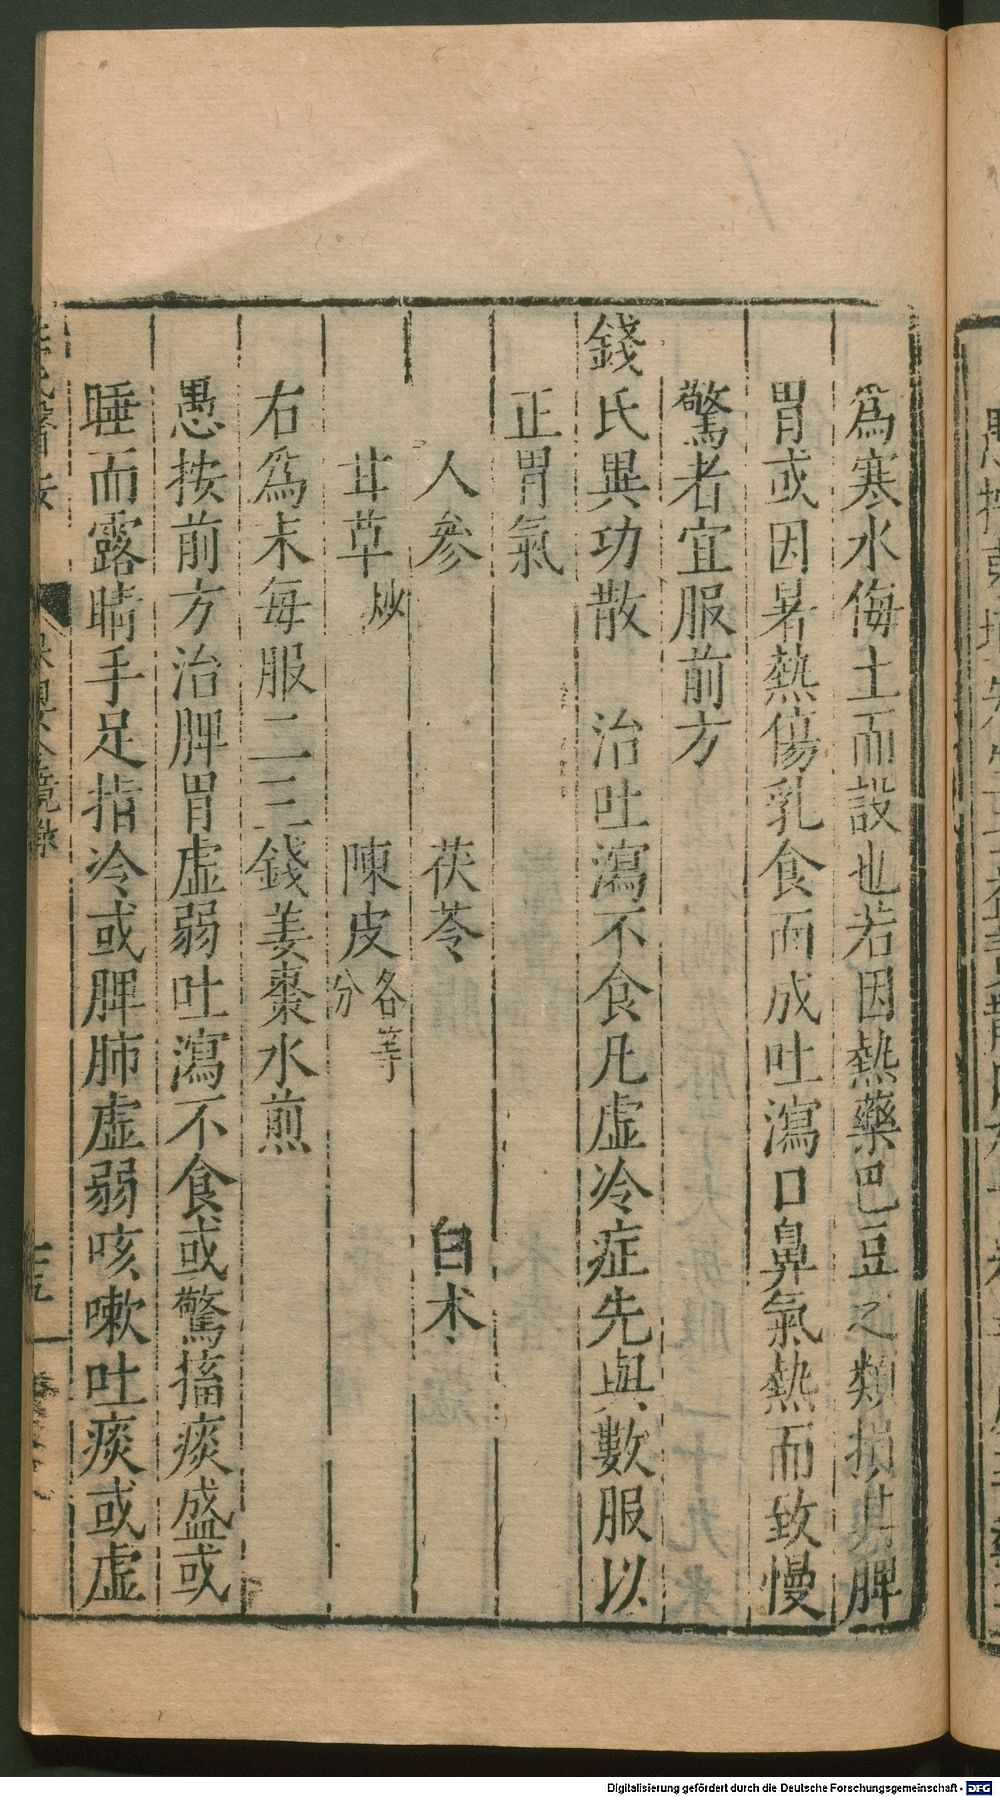 為寒水侮土而設也若因熱藥巴豆之類損其脾
胃或因暑熱傷乳食而成吐瀉口鼻氣熱而致慢
驚者宜服前方
錢氏異功散　治吐瀉不食凡虛冷症先與數服以
正胃氣
人參　茯苓　白朮
甘草炒　陳皮各等分
右為末每服二三錢姜棗水煎
愚按前方治脾胃虛弱吐瀉不食或驚搐痰盛或
睡而露睛手足指冷或脾肺虛弱咳嗽吐痰或虛
Digitalisierung gefördert durch die Deutsche Forschungsgemeinschaft - DFG